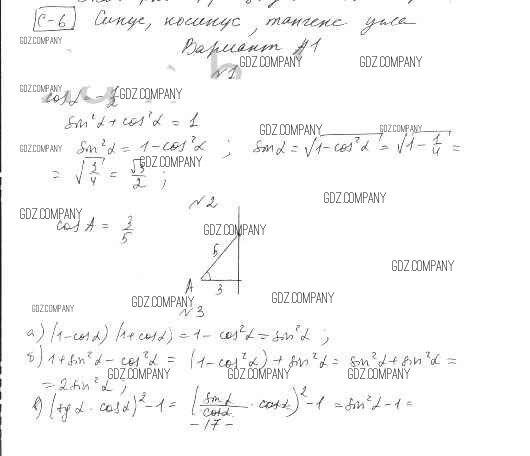 С-6 Синус, косинус, тангенс угла
Вариант #1
GDZ.COMPANY GDZ.COMPANY GDZ.COMPANY
№1
GDZ.COMPANY GDZ.COMPANY
cosα = 1/2
sin²α + cos²α = 1
GDZ.COMPANY GDZ.COMPANY
GDZ.COMPANY sin²α = 1 - cos²α ; sinα = √(1-cos²α) = √(1 - 1/4) =
GDZ.COMPANY
= √(3/4) = √3/2 ;
GDZ.COMPANY
№2
GDZ.COMPANY
cos A = 3/5
GDZ.COMPANY
5
GDZ.COMPANY
A 3
GDZ.COMPANY GDZ.COMPANY GDZ.COMPANY
№3
а) (1-cosα)(1+cosα) = 1 - cos²α = sin²α ;
б) 1 + sin²α - cos²α = (1-cos²α) + sin²α = sin²α + sin²α =
GDZ.COMPANY GDZ.COMPANY GDZ.COMPANY
= 2sin²α ;
в) (tgα · cosα)² - 1 = (sinα/cosα · cosα)² - 1 = sin²α - 1 =
- 17 -